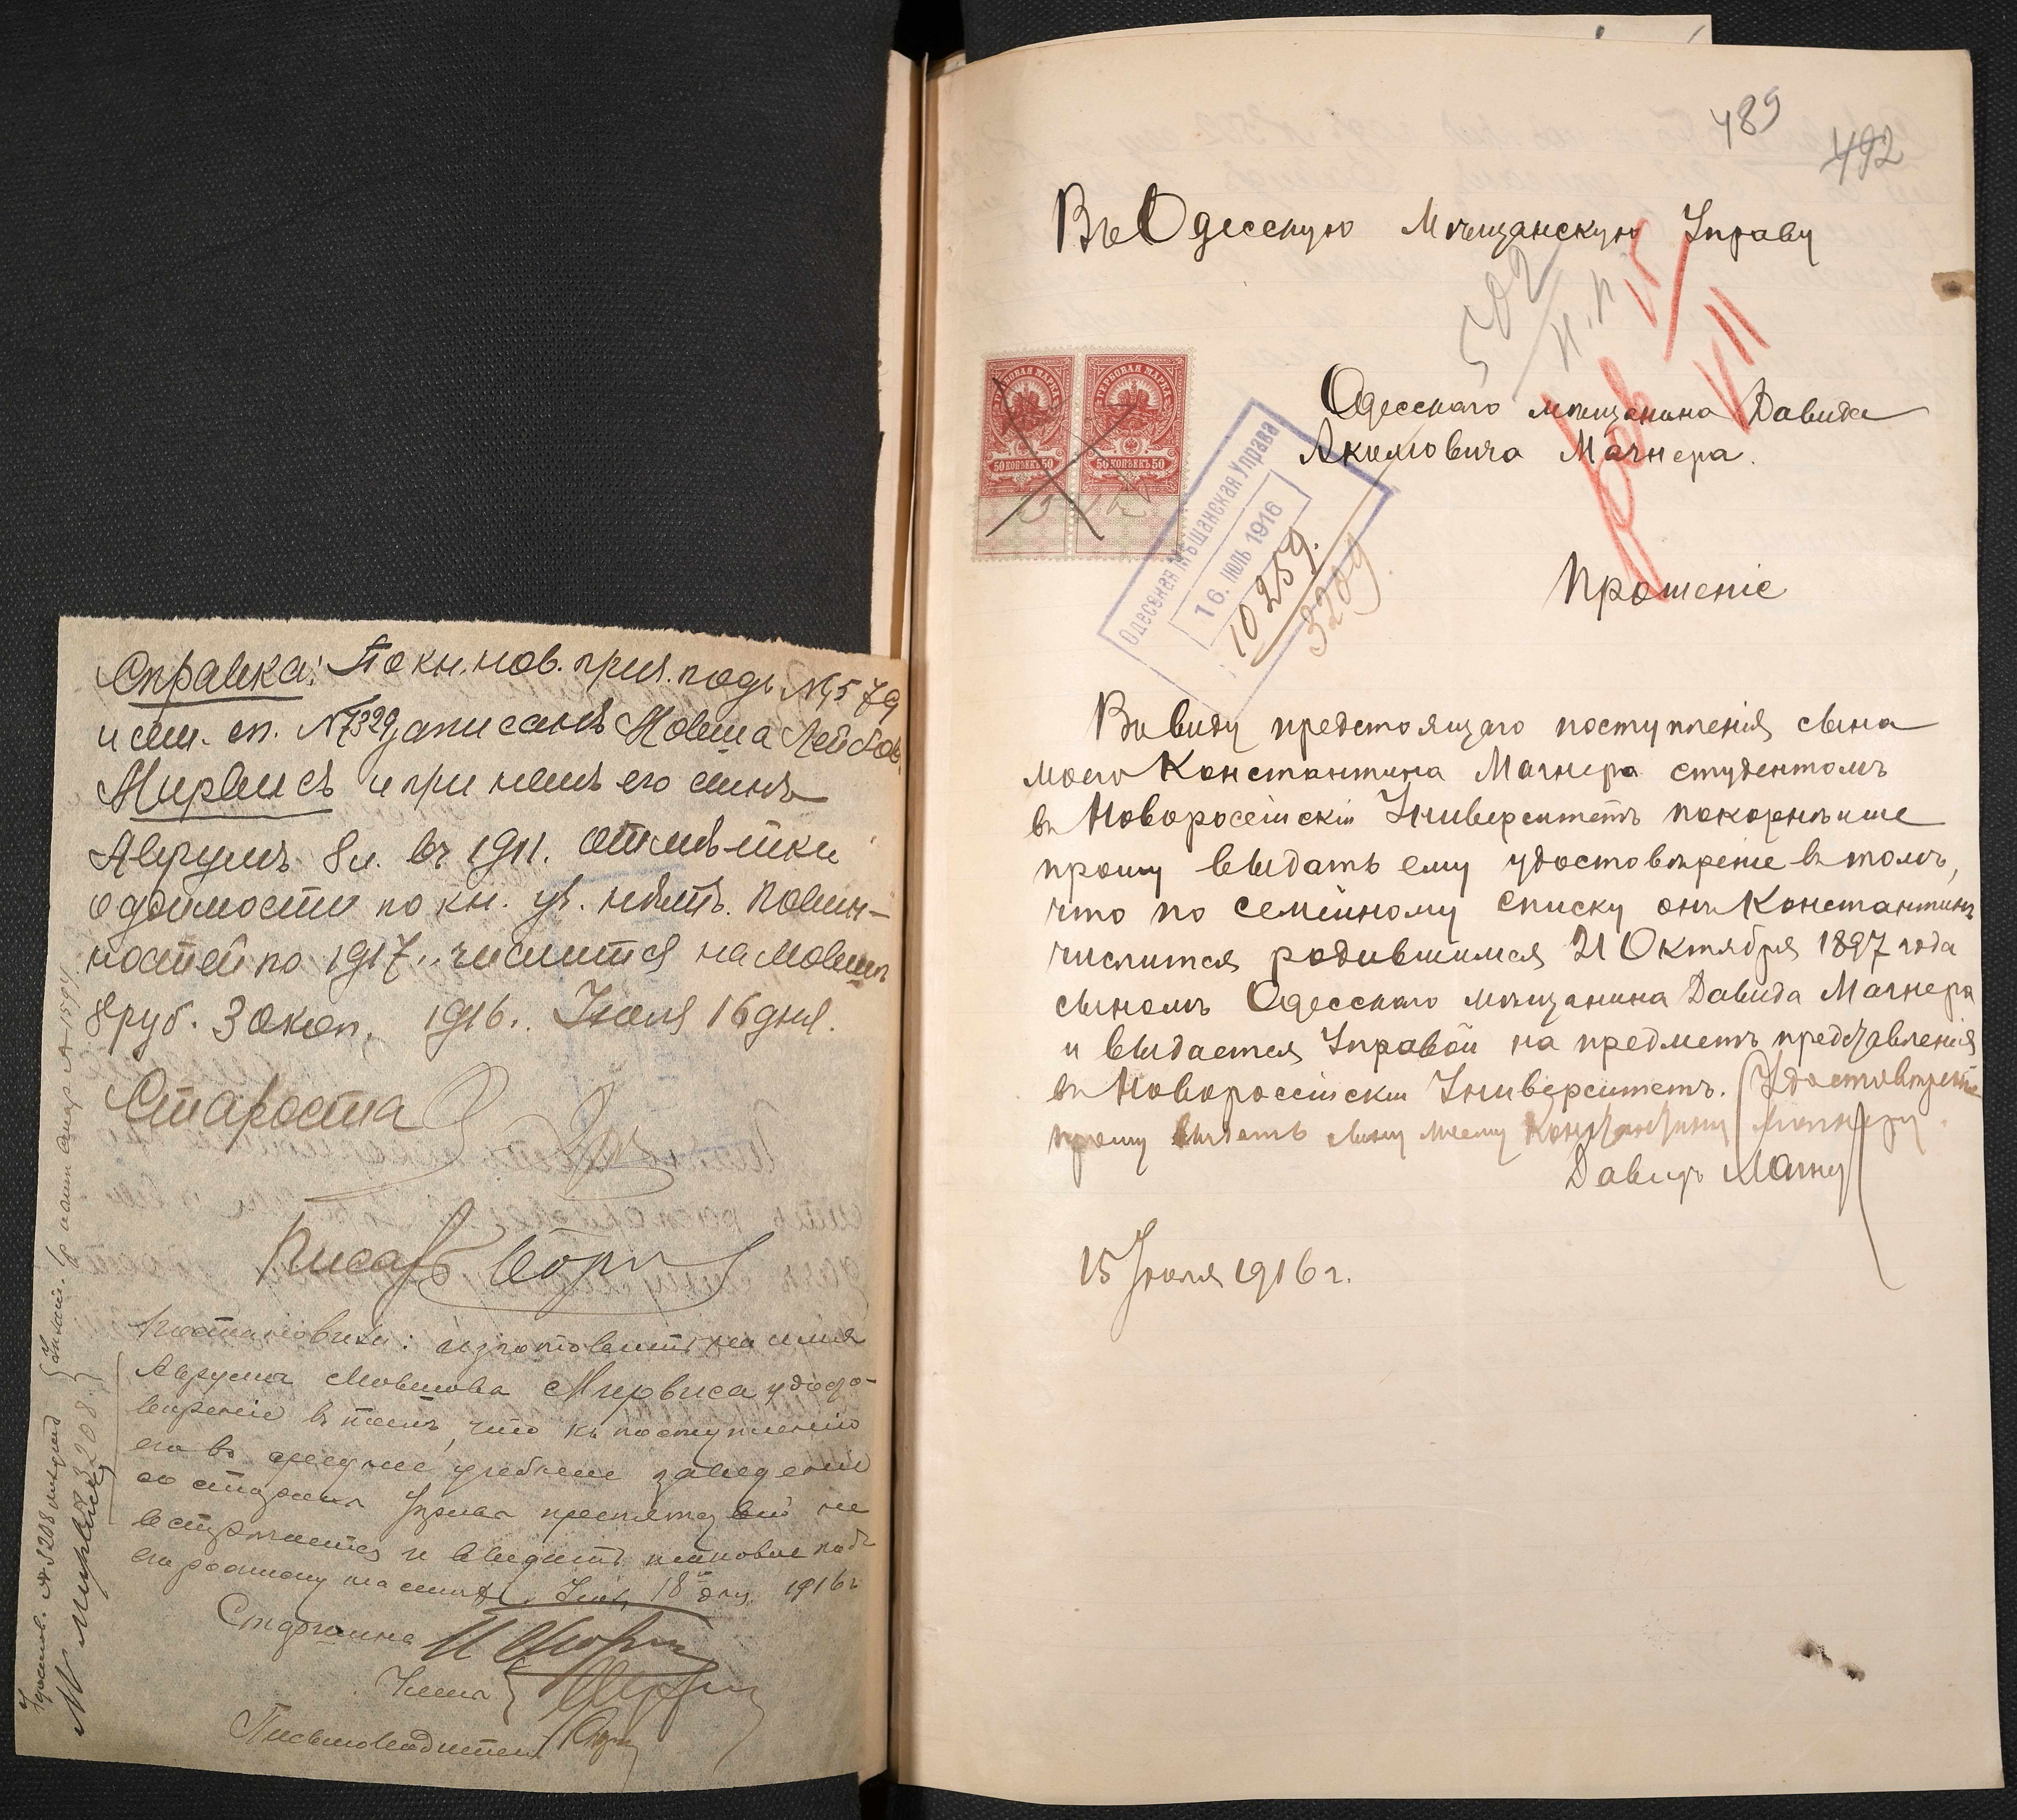 Справка: По кн. нов. приз. подъ № 579
и сем. сп. № 7329 записанъ Мовша Лейбов.
Мирвисъ и при немъ его сынъ
Аврумъ 8 л. въ 1911. Отмѣтки
о судимости по кн. уг. нѣтъ. Повин-
ностей по 1917 г. числится на Мовшѣ
8 руб. 30 коп. 1916 г. Іюля 16 дня.
Староста
Писарь
Постановили: изготовить на имя
Аврума Мовшова Мирвиса удосто-
вѣреніе въ томъ, что къ поступленію
его въ среднее учебное заведеніе
со стороны Управы препятствій не
встрѣчается и выдать таковое подъ
росписку на семъ. Іюля 18 дня 1916 г.
Старшина
Члены
Письмоводитель
Удостов. № 3208 получилъ
М Мирвисъ
3208
489
492
Въ Одесскую Мѣщанскую Управу
502
Н.П.
VII
ГЕРБОВАЯ МАРКА ГЕРБОВАЯ МАРКА
50 КОПѢЕКЪ 50 50 КОПѢЕКЪ 50
Одесскаго мѣщанина Давида
Акимовича Магнера.
Одесская Мѣщанская Управа
16. ІЮЛЬ 1916
10259.
3209.
Прошеніе
Въ виду предстоящаго поступленія сына
моего Константина Магнера студентомъ
въ Новороссійскій Университетъ покорнѣйше
прошу выдать ему удостовѣреніе въ томъ,
что по семейному списку онъ Константинъ
числится родившимся 21 Октября 1897 года
сыномъ Одесскаго мѣщанина Давида Магнера
и выдается Управой на предметъ представленія
въ Новороссійскій Университетъ. Удостовѣреніе
прошу выдать сыну моему Константину Магнеру.
Давидъ Магнер
15 Іюля 1916 г.